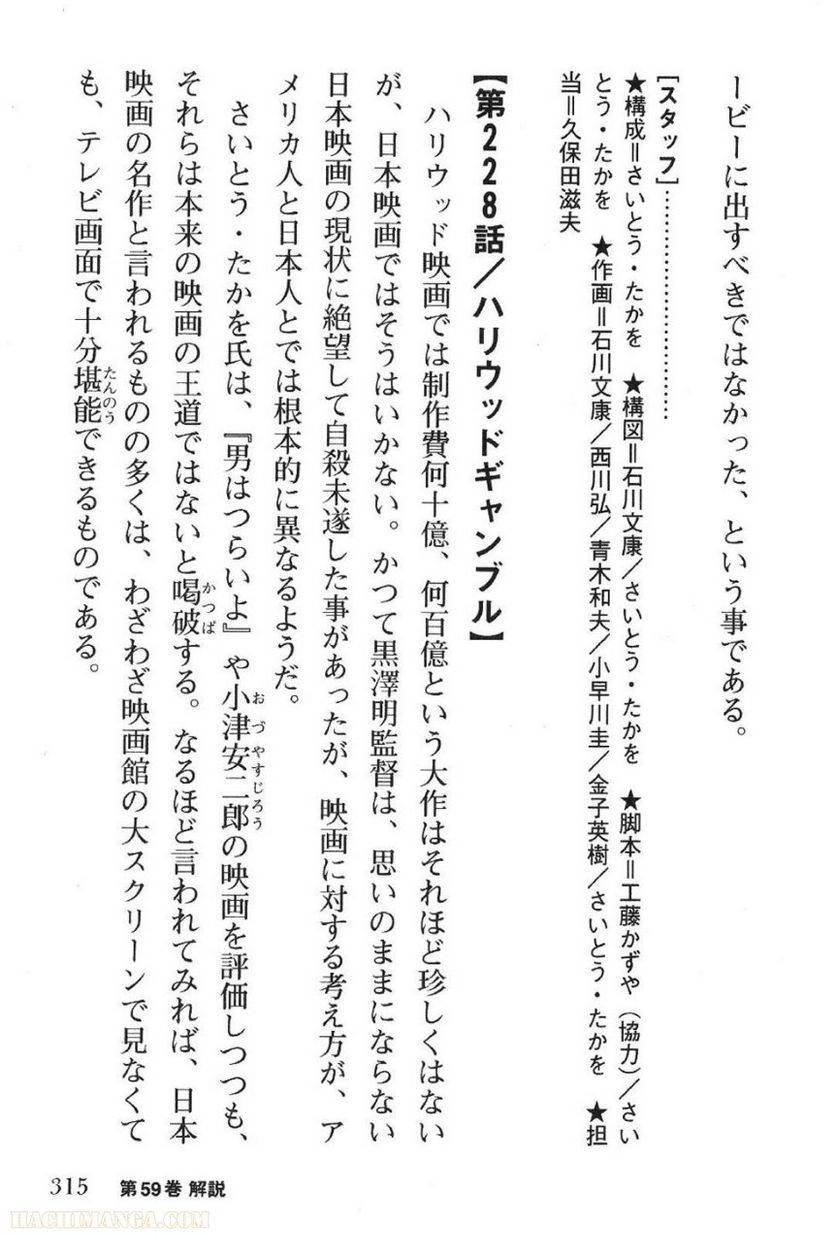 ービーに出すべきではなかった、という事である。
[スタッフ]……………………………
★構成＝さいとう・たかを　★構図＝石川文康／さいとう・たかを　★脚本＝工藤かずや（協力）／さい
とう・たかを　★作画＝石川文康／西川弘／青木和夫／小早川圭／金子英樹／さいとう・たかを　★担
当＝久保田滋夫
【第228話／ハリウッドギャンブル】
ハリウッド映画では制作費何十億、何百億という大作はそれほど珍しくはない
が、日本映画ではそうはいかない。かつて黒澤明監督は、思いのままにならない
日本映画の現状に絶望して自殺未遂した事があったが、映画に対する考え方が、ア
メリカ人と日本人とでは根本的に異なるようだ。
さいとう・たかを氏は、『男はつらいよ』や小津安二郎の映画を評価しつつも、
おづやすじろう
それらは本来の映画の王道ではないと喝破する。なるほど言われてみれば、日本
かつぱ
映画の名作と言われるものの多くは、わざわざ映画館の大スクリーンで見なくて
も、テレビ画面で十分堪能できるものである。
たんのう
315　第59巻 解説
HACHIMANGA.COM